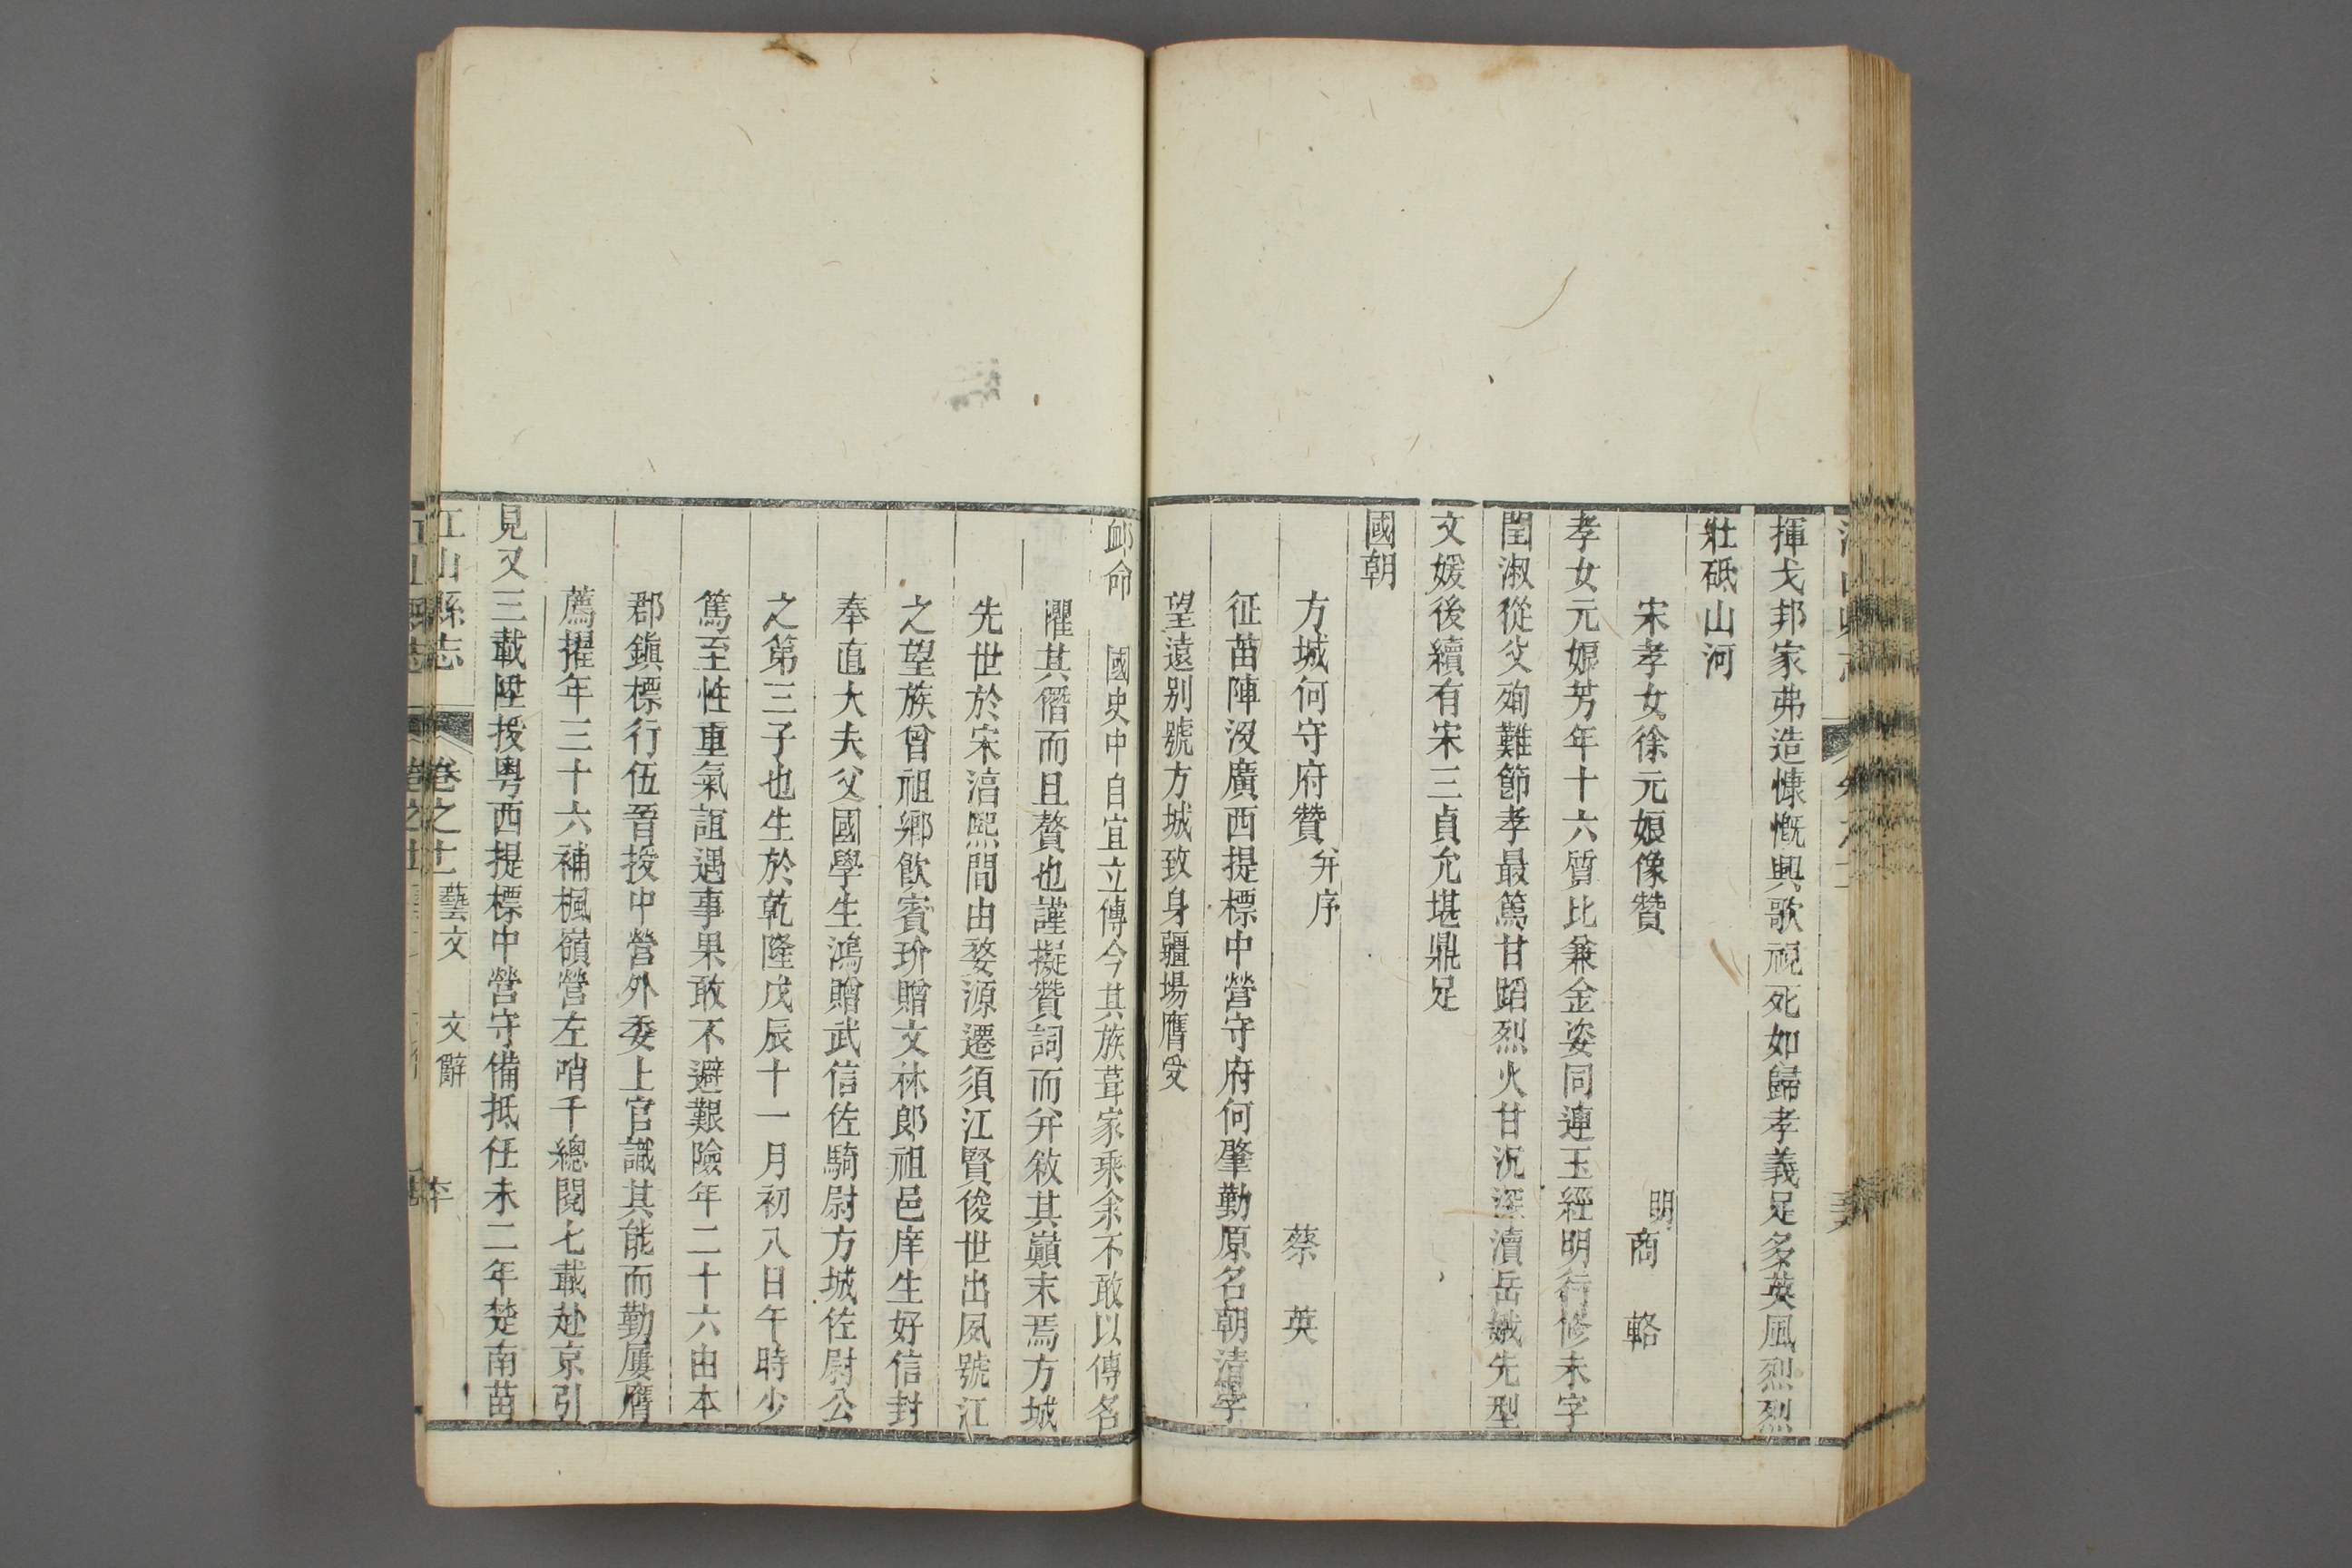 揮戈邦家弗造慷慨興歌視死如歸孝義足多英風烈烈
壯砥山河
宋孝女徐元娘像贊
明商輅
孝女元娘芳年十六質比兼金姿同連玉經明行修未字
閨淑從父殉難節孝最篤甘蹈烈火甘沉深瀆岳娥先型
文媛後續有宋三貞允堪鼎足
國朝
方城何守府贊并序
蔡英
征苗陣沒廣西提標中營守府何肇勤原名朝清字
望遠别號方城致身疆場膺受
卹命 國史中自宜立傳今其族葺家乘余不敢以傳名
懼其僭而且贅也謹擬贊詞而弁敘其巔末焉方城
先世於宋淳熙間由婺源遷須江賢俊世出夙號江
之望族曾祖鄉飲賓玠贈文林郎祖邑庠生好信封
奉直大夫父國學生鴻贈武信佐騎尉方城佐尉公
之第三子也生於乾隆戊辰十一月初八日午時少
篤至性重氣誼遇事果敢不避艱險年二十六由本
郡鎮標行伍晉授中營外委上官識其能而勤屢膺
薦擢年三十六補楓嶺營左哨千總閱七載赴京引
見又三載陞授粵西提標中營守備抵任未二年楚南苗
江山縣志 卷之十二 藝文 文辭